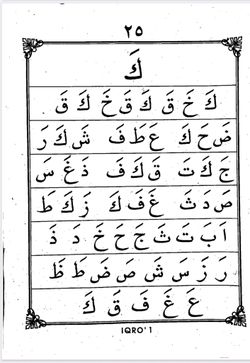 ٢٥
كَ
كَ خَ قَ كَ قَ خَ كَ قَ
ضَ حَ كَ عَ طَ فَ شَ كَ رَ
جَ كَ تَ قَ كَ فَ ذَ غَ سَ
صَ دَ ثَ غَ فَ كَ زَ كَ طَ
اَ بَ تَ ثَ جَ حَ خَ دَ ذَ
رَ زَ سَ شَ صَ ضَ طَ ظَ
عَ غَ فَ قَ كَ
IQRO' 1